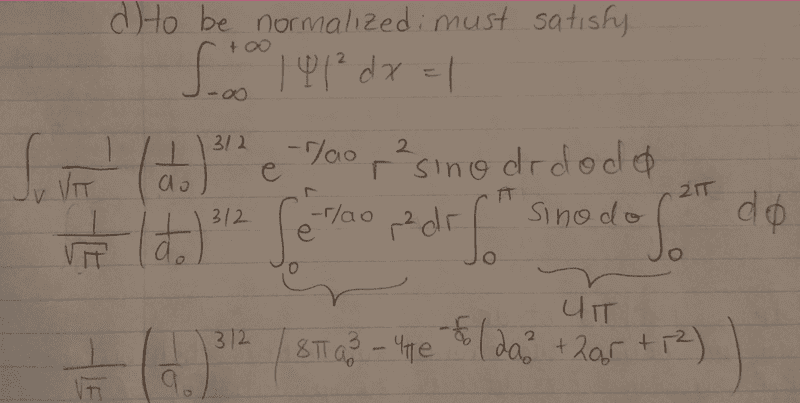 d) to be normalized: must satisfy
∫_{-∞}^{+∞} |Ψ|² dx = 1
∫_V 1/√π (1/a₀)^{3/2} e^{-r/a₀} r² sinθ dr dθ dϕ
1/√π (1/a₀)^{3/2} ∫₀^r e^{-r/a₀} r² dr ∫₀^π sinθ dθ ∫₀^{2π} dϕ
4π
1/√π (1/a₀)^{3/2} (8πa₀³ - 4πe^{-r/a₀} (2a₀² + 2a₀r + r²))